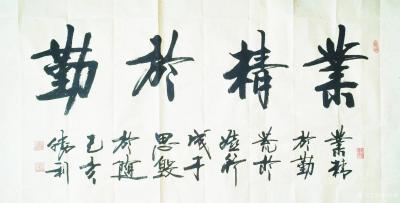 業精於勤
業精
於勤
荒於
嬉行
成于
思毀
於随
己亥
勝利